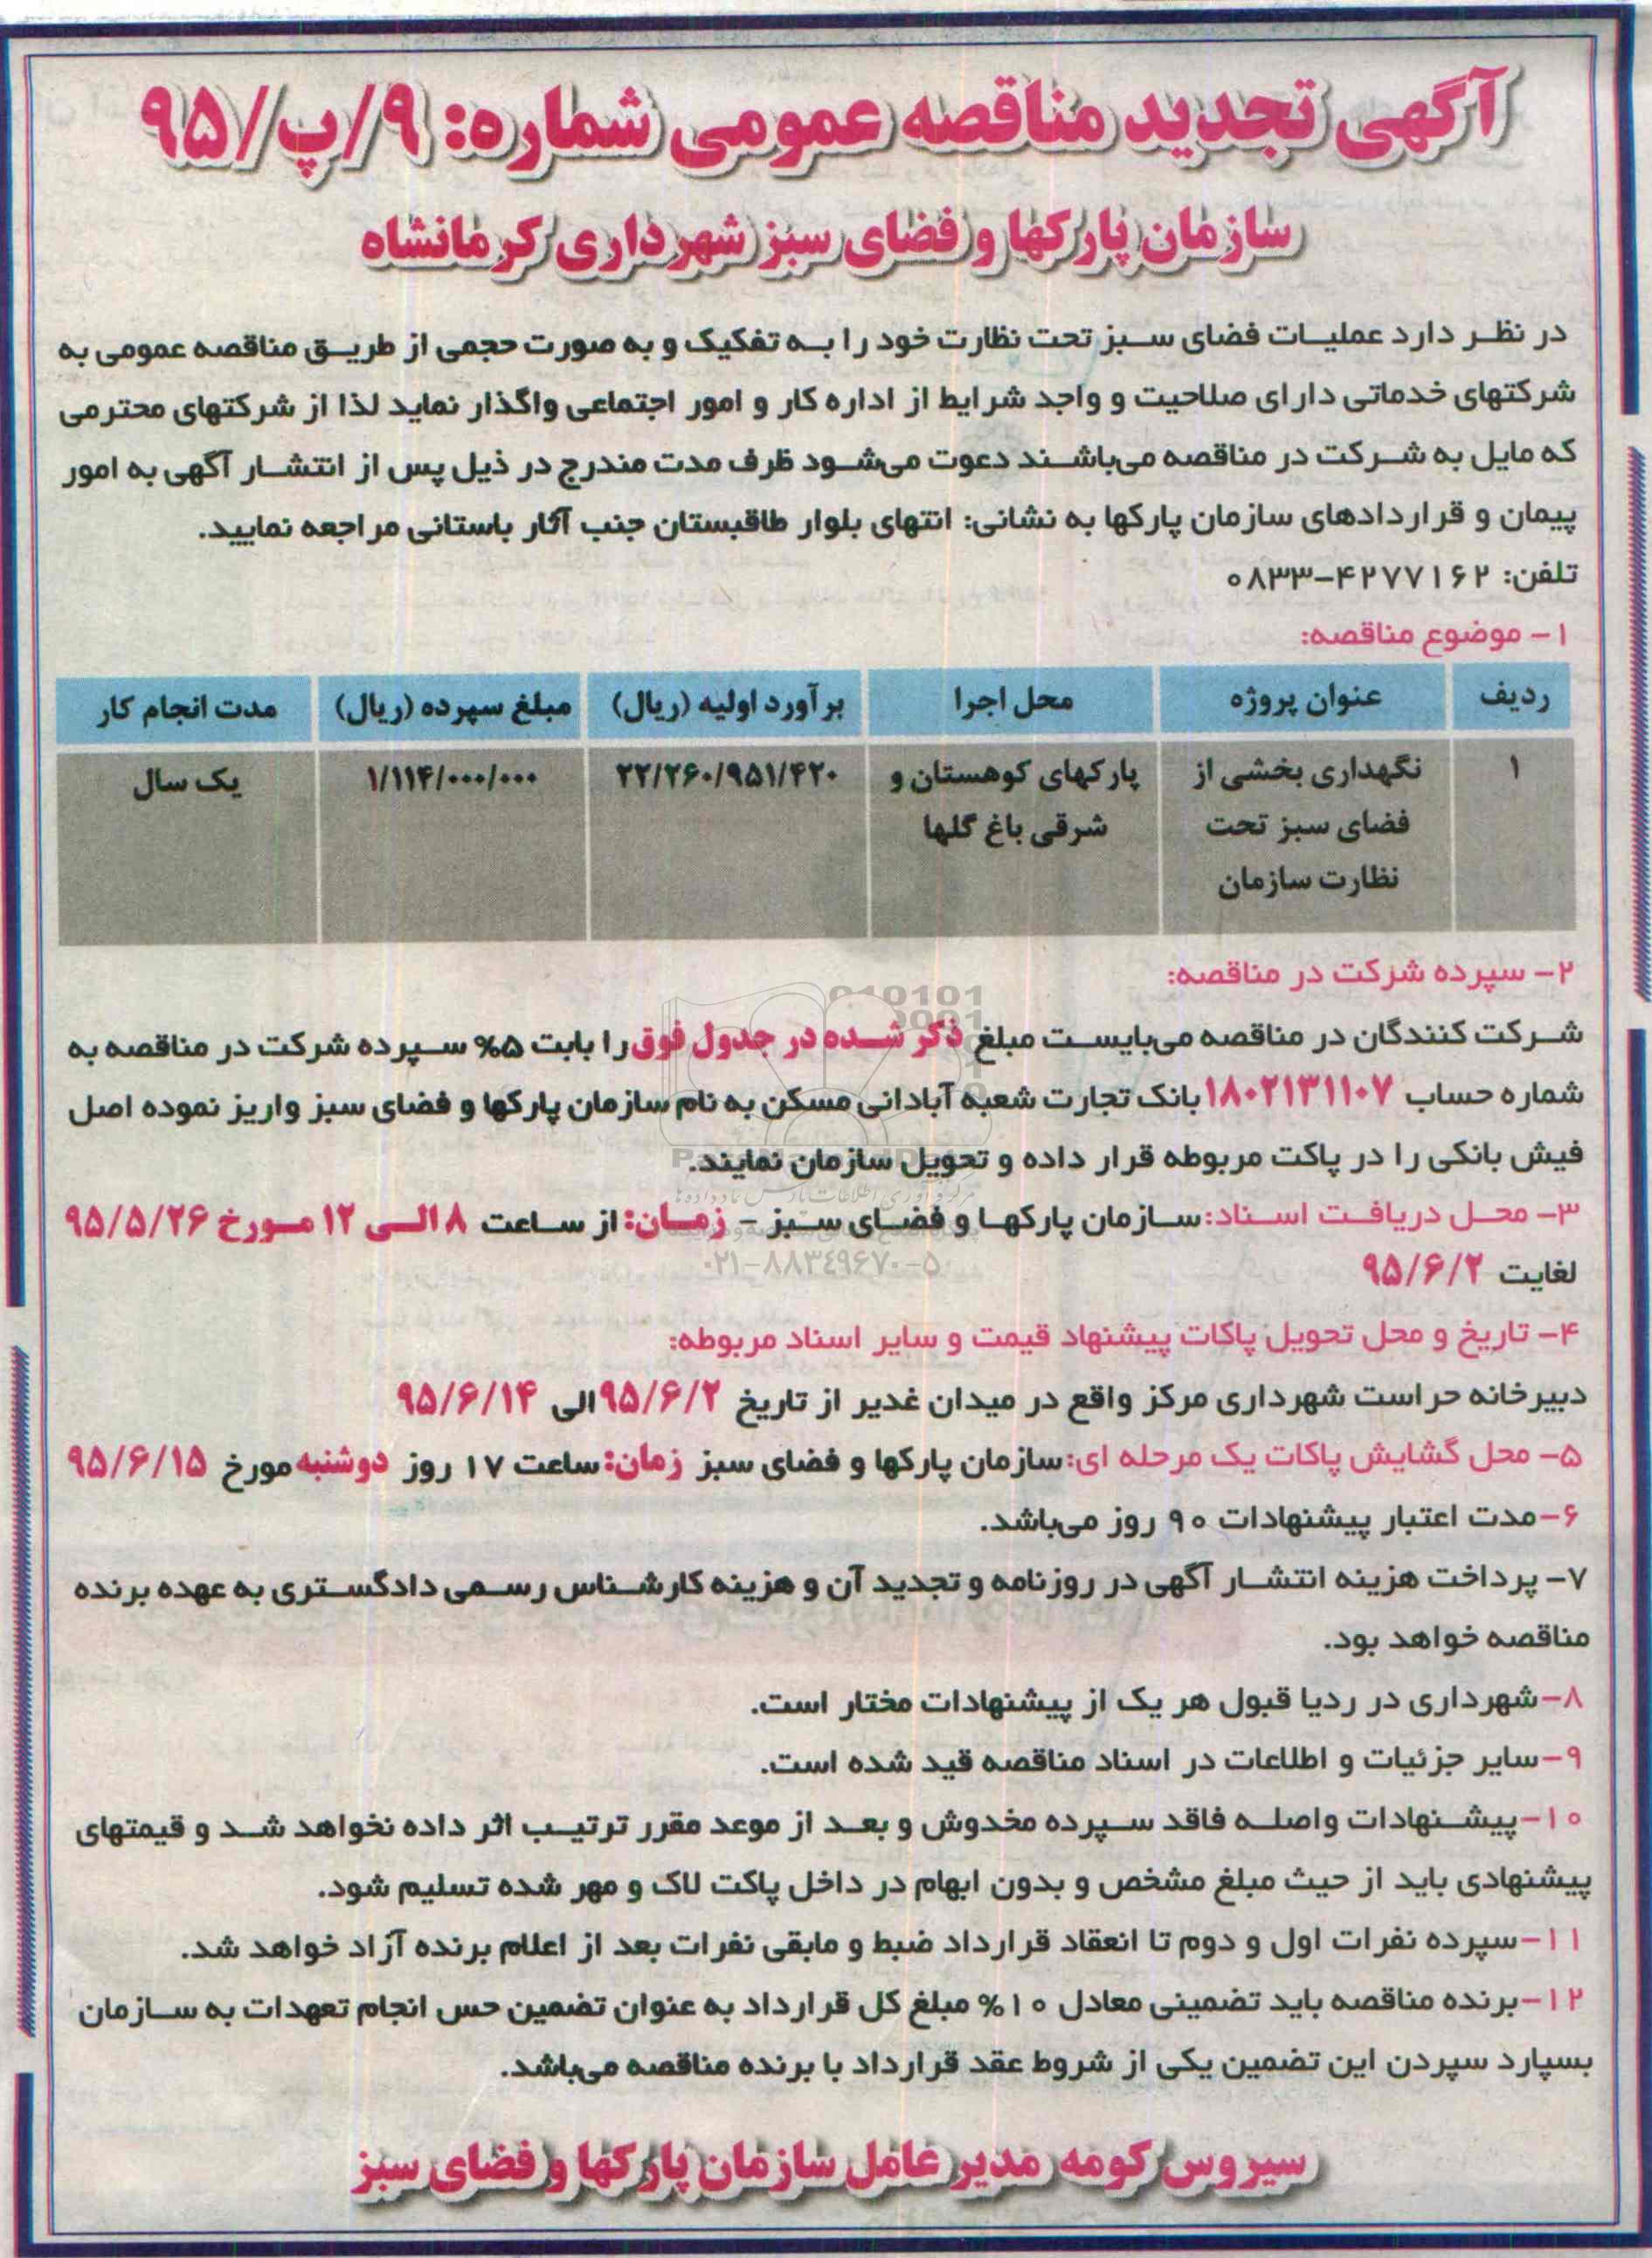 آگهی تجدید مناقصه عمومی شماره: ۹/پ/۹۵
سازمان پارکها و فضای سبز شهرداری کرمانشاه
در نظر دارد عملیات فضای سبز تحت نظارت خود را به تفکیک و به صورت حجمی از طریق مناقصه عمومی به
شرکتهای خدماتی دارای صلاحیت و واجد شرایط از اداره کار و امور اجتماعی واگذار نماید لذا از شرکتهای محترمی
که مایل به شرکت در مناقصه می‌باشند دعوت می‌شود ظرف مدت مندرج در ذیل پس از انتشار آگهی به امور
پیمان و قراردادهای سازمان پارکها به نشانی: انتهای بلوار طاقبستان جنب آثار باستانی مراجعه نمایید.
تلفن: ۴۲۷۷۱۶۲-۰۸۳۳
۱- موضوع مناقصه:
ردیف عنوان پروژه محل اجرا برآورد اولیه (ریال) مبلغ سپرده (ریال) مدت انجام کار
۱ نگهداری بخشی از پارکهای کوهستان و ۲۲/۲۶۰/۹۵۱/۴۲۰ ۱/۱۱۴/۰۰۰/۰۰۰ یک سال
فضای سبز تحت شرقی باغ گلها
نظارت سازمان
۲- سپرده شرکت در مناقصه:
شرکت کنندگان در مناقصه می‌بایست مبلغ ذکر شده در جدول فوق را بابت ۵% سپرده شرکت در مناقصه به
شماره حساب ۱۸۰۲۱۳۱۱۰۷ بانک تجارت شعبه آبادانی مسکن به نام سازمان پارکها و فضای سبز واریز نموده اصل
فیش بانکی را در پاکت مربوطه قرار داده و تحویل سازمان نمایند.
۳- محل دریافت اسناد: سازمان پارکها و فضای سبز - زمان: از ساعت ۸ الی ۱۲ مورخ ۹۵/۵/۲۶
لغایت ۹۵/۶/۲
۰۲۱-۸۸۳۴۹۶۷۰-۵
۴- تاریخ و محل تحویل پاکات پیشنهاد قیمت و سایر اسناد مربوطه:
دبیرخانه حراست شهرداری مرکز واقع در میدان غدیر از تاریخ ۹۵/۶/۲ الی ۹۵/۶/۱۴
۵- محل گشایش پاکات یک مرحله ای: سازمان پارکها و فضای سبز زمان: ساعت ۱۷ روز دوشنبه مورخ ۹۵/۶/۱۵
۶- مدت اعتبار پیشنهادات ۹۰ روز می‌باشد.
۷- پرداخت هزینه انتشار آگهی در روزنامه و تجدید آن و هزینه کارشناس رسمی دادگستری به عهده برنده
مناقصه خواهد بود.
۸- شهرداری در ردیا قبول هر یک از پیشنهادات مختار است.
۹- سایر جزئیات و اطلاعات در اسناد مناقصه قید شده است.
۱۰- پیشنهادات واصله فاقد سپرده مخدوش و بعد از موعد مقرر ترتیب اثر داده نخواهد شد و قیمتهای
پیشنهادی باید از حیث مبلغ مشخص و بدون ابهام در داخل پاکت لاک و مهر شده تسلیم شود.
۱۱- سپرده نفرات اول و دوم تا انعقاد قرارداد ضبط و مابقی نفرات بعد از اعلام برنده آزاد خواهد شد.
۱۲- برنده مناقصه باید تضمینی معادل ۱۰% مبلغ کل قرارداد به عنوان تضمین حس انجام تعهدات به سازمان
بسپارد سپردن این تضمین یکی از شروط عقد قرارداد با برنده مناقصه می‌باشد.
سیروس کومه مدیر عامل سازمان پارکها و فضای سبز